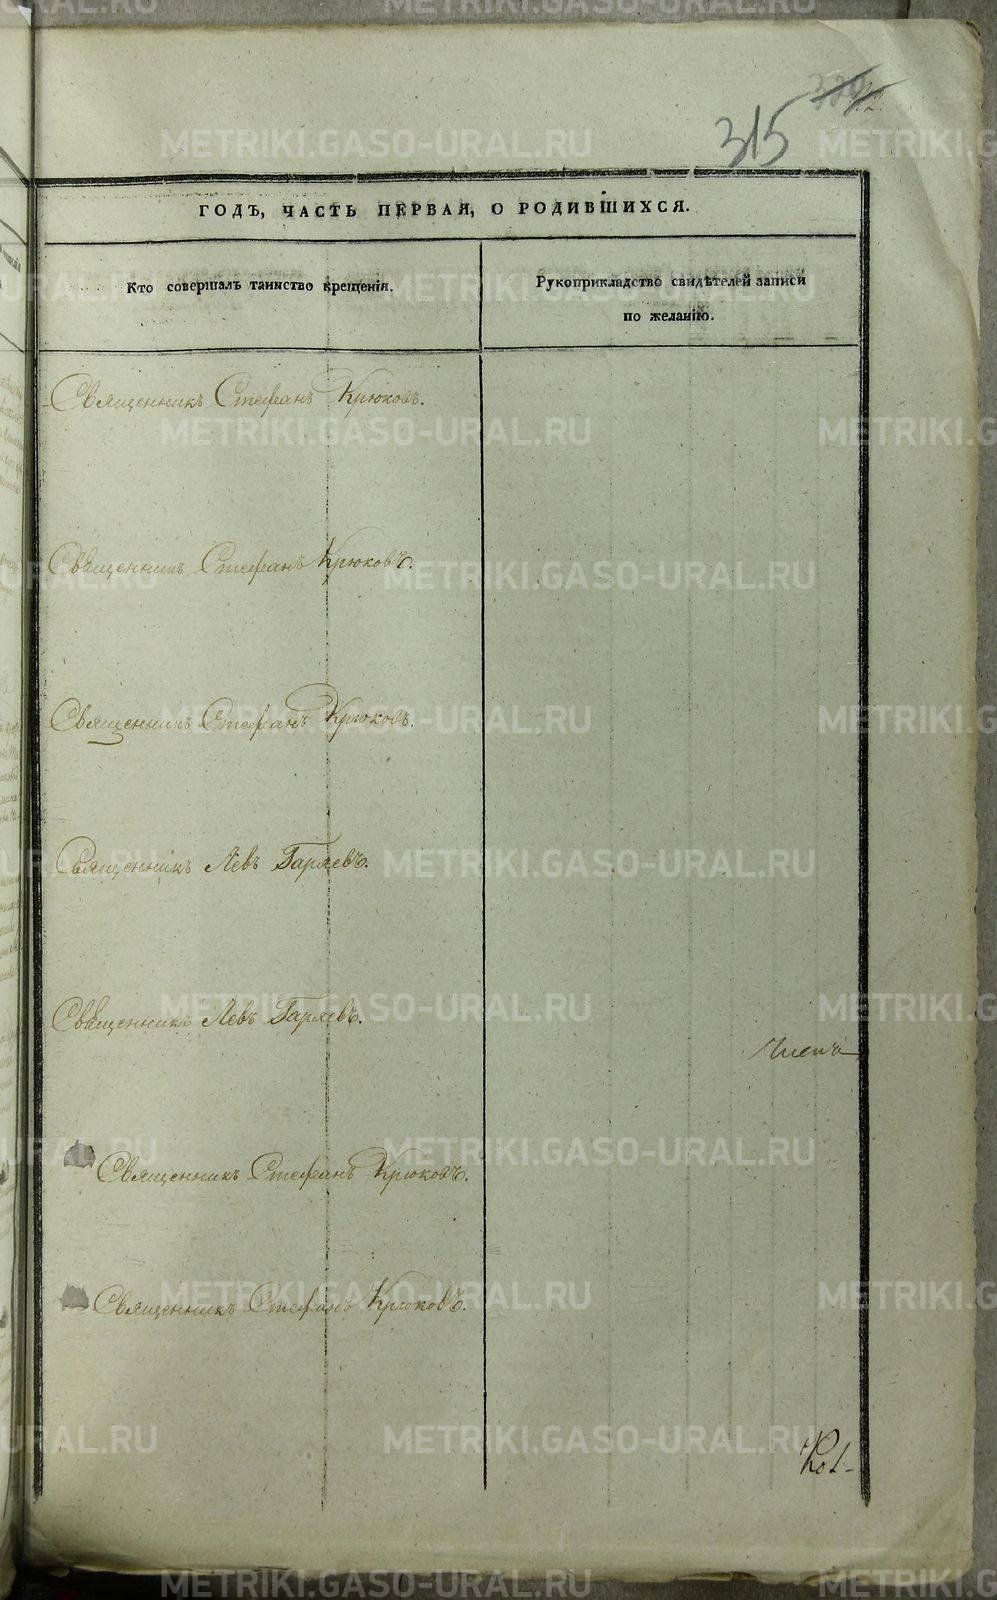 315
ГОДЪ, ЧАСТЬ ПЕРВАЯ, О РОДИВШИХСЯ.
Кто совершалъ таинство крещенія.
Рукоприкладство свидѣтелей записи
по желанію.
Священникъ Стефанъ Крюковъ.
Священникъ Стефанъ Крюковъ.
Священникъ Стефанъ Крюковъ.
Священникъ Левъ Гаряевъ.
Священникъ Левъ Гаряевъ.
Священникъ Стефанъ Крюковъ.
Священникъ Стефанъ Крюковъ.
METRIKI.GASO-URAL.RU